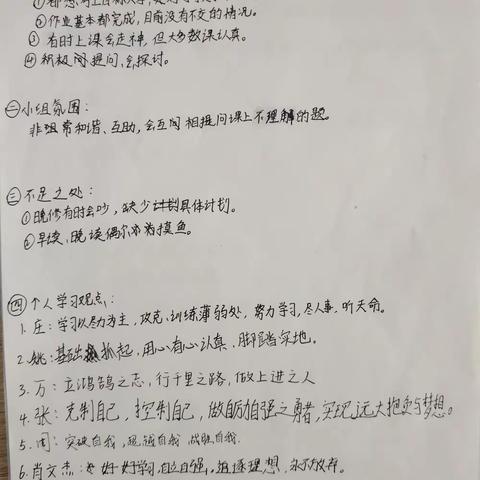 ②作业基本都完成，目前没有不交的情况。
③有时上课会走神，但大多数课认真。
④积极问提问，会探讨。
二小组氛围：
非常和谐、互助，会互问相提问课上不理解的题。
三不足之处：
①晚修有时会吵，缺少计划具体计划。
②早读、晚读偶尔摸鱼。
四个人学习观点：
1. 庄：学习以尽力为主，攻克、训练薄弱处，努力学习，尽人事，听天命。
2. 姚：基础抓起，用心有心认真、脚踏实地。
3. 万：立鸿鹄之志，行千里之路，做上进之人
4. 张：克制自己，控制自己，做自励自强之勇者，实现远大抱负与梦想。
5. 周：突破自我，超越自我，战胜自我.
6. 肖文杰：好好学习，自立自强，追逐理想，永不放弃。